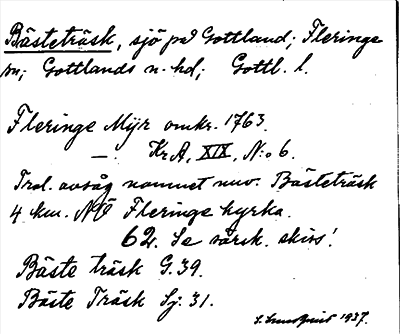 Bästeträsk, sjö på Gottland; Fleringe
sn; Gottlands n. hd; Gottl. l.
Fleringe Myr omkr. 1763.
—. Kr A, XIX, N:o 6.
Trol. avsåg namnet nuv. Bästeträsk
4 km. NÖ Fleringe kyrka.
62. Se särsk. skiss!
Bäste träsk G. 39.
Bäste Träsk Sj. 31.
S. Lundquist 1937.